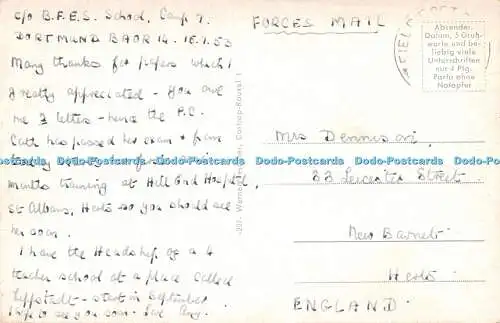 c/o B.F.E.S. School, Camp 7.
DORTMUND BAOR 14. 15.7.53
Many thanks for papers which I
really appreciated - you owe
me 2 letters - hence the P.C.
Cath has passed her exam & from
months training at Hill End Hospital,
St Albans, Herts so you should see
her soon.
I have the Headship of a 4
teacher school at a place called
Lippstadt - start in September
Hope to see you soon - Love
FORCES MAIL
Absender,
Datum, 5 Gruß-
worte und be-
liebig viele
Unterschriften
nur 4 Pfg.
Porto ohne
Notopfer
Mrs Dennison,
33 Leicester Street,
New Barnet
Herts
ENGLAND.
Dodo-Postcards Dodo-Postcards Dodo-Postcards Dodo-Postcards